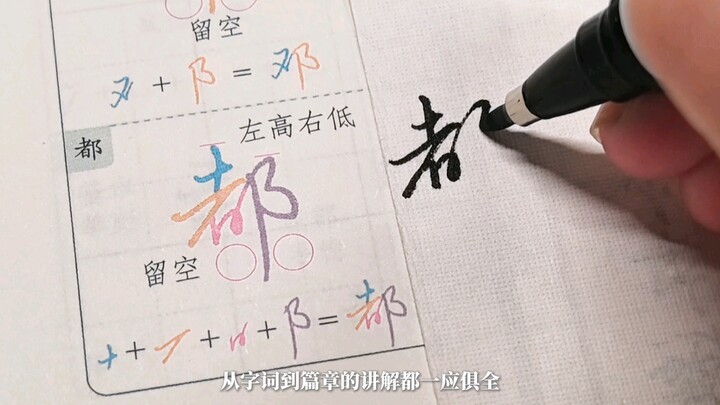 留空
又 + 阝 = 邓
都
左高右低
都
留空
十 + 丆 + 日 + 阝 = 都
都
从字词到篇章的讲解都一应俱全